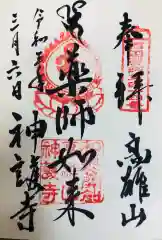 奉拝
高雄山
薬師如来
令和三年
三月六日
神護寺